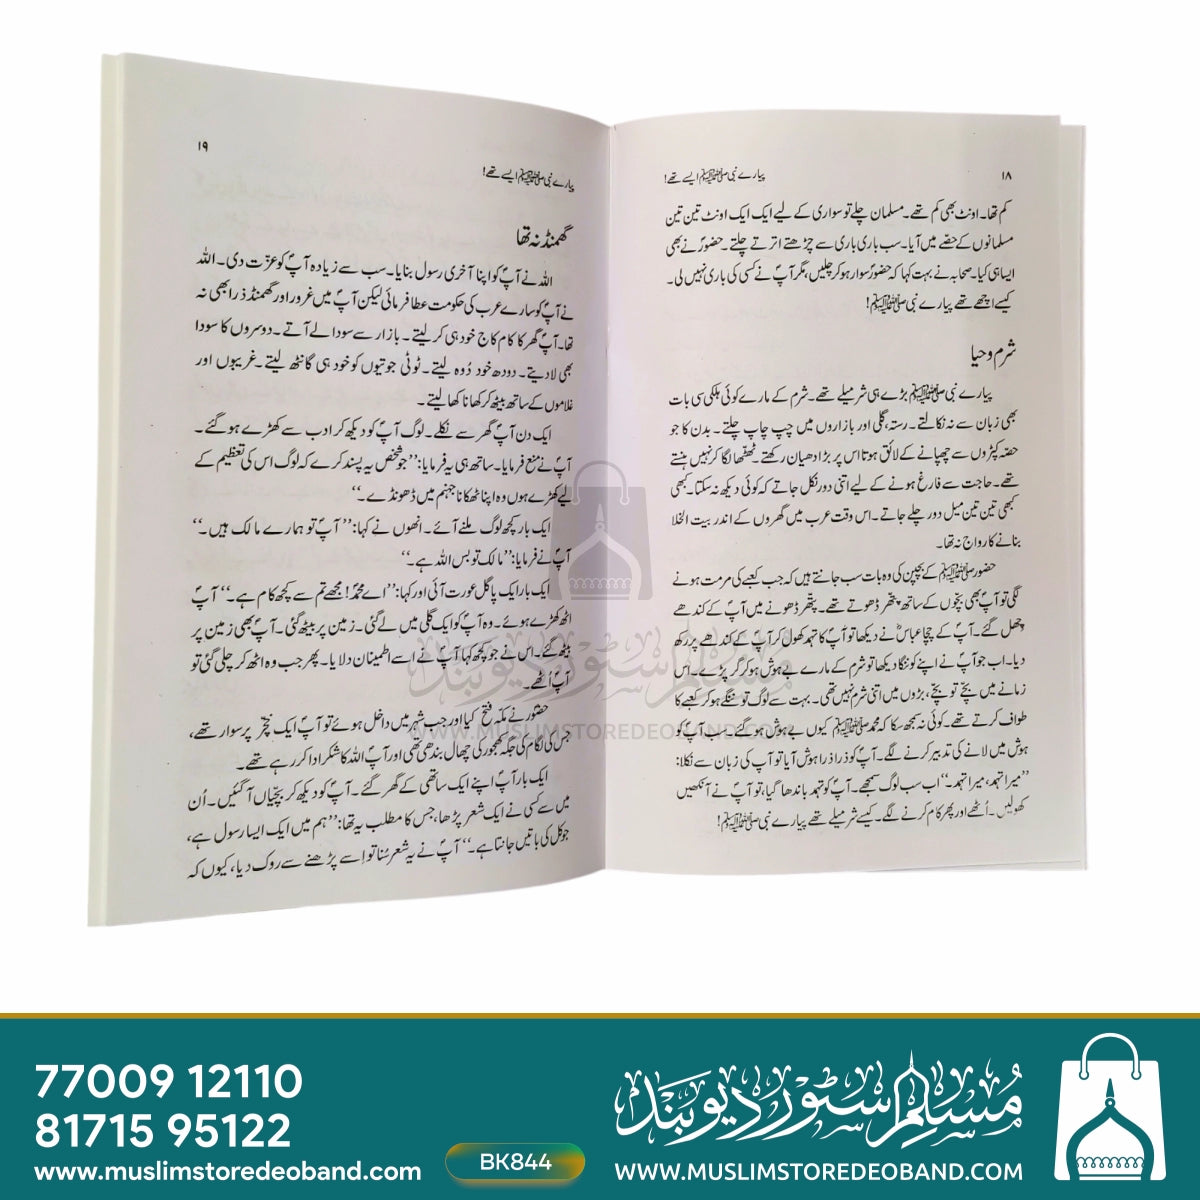 ۱۸
پیارے نبی ﷺ ایسے تھے!
کم تھا۔ اونٹ بھی کم تھے۔ مسلمان چلے تو سواری کے لیے ایک ایک اونٹ تین تین
مسلمانوں کے حصّے میں آیا۔ سب باری باری سے چڑھتے اترتے چلتے۔ حضورؐ نے بھی
ایسا ہی کیا۔ صحابہ نے بہت کہا کہ حضورؐ سوار ہو کر چلیں، مگر آپؐ نے کسی کی باری نہیں لی۔
کیسے اچھے تھے پیارے نبی ﷺ!
شرم و حیا
پیارے نبی ﷺ بڑے ہی شرمیلے تھے۔ شرم کے مارے کوئی ہلکی سی بات
بھی زبان سے نہ نکالتے۔ رستہ، گلی اور بازاروں میں چپ چاپ چلتے۔ بدن کا جو
حصّہ کپڑوں سے چھپانے کے لائق ہوتا اس پر بڑا دھیان رکھتے۔ ٹھٹھا لگا کر نہیں ہنستے
تھے۔ حاجت سے فارغ ہونے کے لیے اتنی دور نکل جاتے کہ کوئی دیکھ نہ سکتا۔ کبھی
کبھی تین تین میل دور چلے جاتے۔ اس وقت عرب میں گھروں کے اندر بیت الخلا
بنانے کا رواج نہ تھا۔
حضور ﷺ کے بچپن کی وہ بات سب جانتے ہیں کہ جب کعبے کی مرمت ہونے
لگی تو آپؐ بھی بچّوں کے ساتھ پتھر ڈھوتے تھے۔ پتھر ڈھونے میں آپؐ کے کندھے
چھل گئے۔ آپؐ کے چچا عباسؓ نے دیکھا تو آپؐ کا تہمد کھول کر آپؐ کے کندھے پر رکھ
دیا۔ اب جو آپؐ نے اپنے کو ننگا دیکھا تو شرم کے مارے بے ہوش ہو کر گر پڑے۔ اس
زمانے میں بچّے تو بچّے، بڑوں میں اتنی شرم نہیں تھی۔ بہت سے لوگ تو ننگے ہو کر کعبے کا
طواف کرتے تھے۔ کوئی نہ سمجھ سکا کہ محمد ﷺ کیوں بے ہوش ہو گئے۔ سب آپؐ کو
ہوش میں لانے کی تدبیر کرنے لگے۔ آپؐ کو ذرا ذرا ہوش آیا تو آپؐ کی زبان سے نکلا:
”میرا تہمد، میرا تہمد۔“ اب سب لوگ سمجھے۔ آپؐ کو تہمد باندھا گیا، تو آپؐ نے آنکھیں
کھولیں۔ اُٹھے اور پھر کام کرنے لگے۔ کیسے شرمیلے تھے پیارے نبی ﷺ!
۱۹
پیارے نبی ﷺ ایسے تھے!
گھمنڈ نہ تھا
اللہ نے آپؐ کو اپنا آخری رسول بنایا۔ سب سے زیادہ آپؐ کو عزّت دی۔ اللہ
نے آپؐ کو سارے عرب کی حکومت عطا فرمائی لیکن آپؐ میں غرور اور گھمنڈ ذرا بھی نہ
تھا۔ آپؐ گھر کا کام کاج خود ہی کر لیتے۔ بازار سے سودا لے آتے۔ دوسروں کا سودا
بھی لا دیتے۔ دودھ خود دُوہ لیتے۔ ٹوٹی جوتیوں کو خود ہی گانٹھ لیتے۔ غریبوں اور
غلاموں کے ساتھ بیٹھ کر کھانا کھا لیتے۔
ایک دن آپؐ گھر سے نکلے۔ لوگ آپؐ کو دیکھ کر ادب سے کھڑے ہو گئے۔
آپؐ نے منع فرمایا۔ ساتھ ہی یہ فرمایا: ”جو شخص یہ پسند کرے کہ لوگ اس کی تعظیم کے
لیے کھڑے ہوں وہ اپنا ٹھکانا جہنم میں ڈھونڈے۔“
ایک بار کچھ لوگ ملنے آئے۔ انھوں نے کہا: ”آپؐ تو ہمارے مالک ہیں۔“
آپؐ نے فرمایا: ”مالک تو بس اللہ ہے۔“
ایک بار ایک پاگل عورت آئی اور کہا: ”اے محمدؐ! مجھے تم سے کچھ کام ہے۔“ آپؐ
اٹھ کھڑے ہوئے۔ وہ آپؐ کو ایک گلی میں لے گئی۔ زمین پر بیٹھ گئی۔ آپؐ بھی زمین پر
بیٹھ گئے۔ اس نے جو کچھ کہا آپؐ نے اسے اطمینان دلایا۔ پھر جب وہ اٹھ کر چلی گئی تو
آپؐ اُٹھے۔
حضورؐ نے مکّہ فتح کیا اور جب شہر میں داخل ہوئے تو آپؐ ایک خچّر پر سوار تھے،
جس کی لگام کی جگہ کھجور کی چھال بندھی تھی اور آپؐ اللہ کا شکر ادا کر رہے تھے۔
ایک بار آپؐ اپنے ایک ساتھی کے گھر گئے۔ آپؐ کو دیکھ کر بچّیاں آ گئیں۔ اُن
میں سے کسی نے ایک شعر پڑھا، جس کا مطلب یہ تھا: ”ہم میں ایک ایسا رسول ہے،
جو کل کی باتیں جانتا ہے۔“ آپؐ نے یہ شعر سُنا تو اِسے پڑھنے سے روک دیا، کیوں کہ
مسلم سٹور دیوبند
WWW.MUSLIMSTOREDEOBAND.COM
77009 12110
81715 95122
www.muslimstoredeoband.com
BK844
مسلم سٹور دیوبند
WWW.MUSLIMSTOREDEOBAND.COM